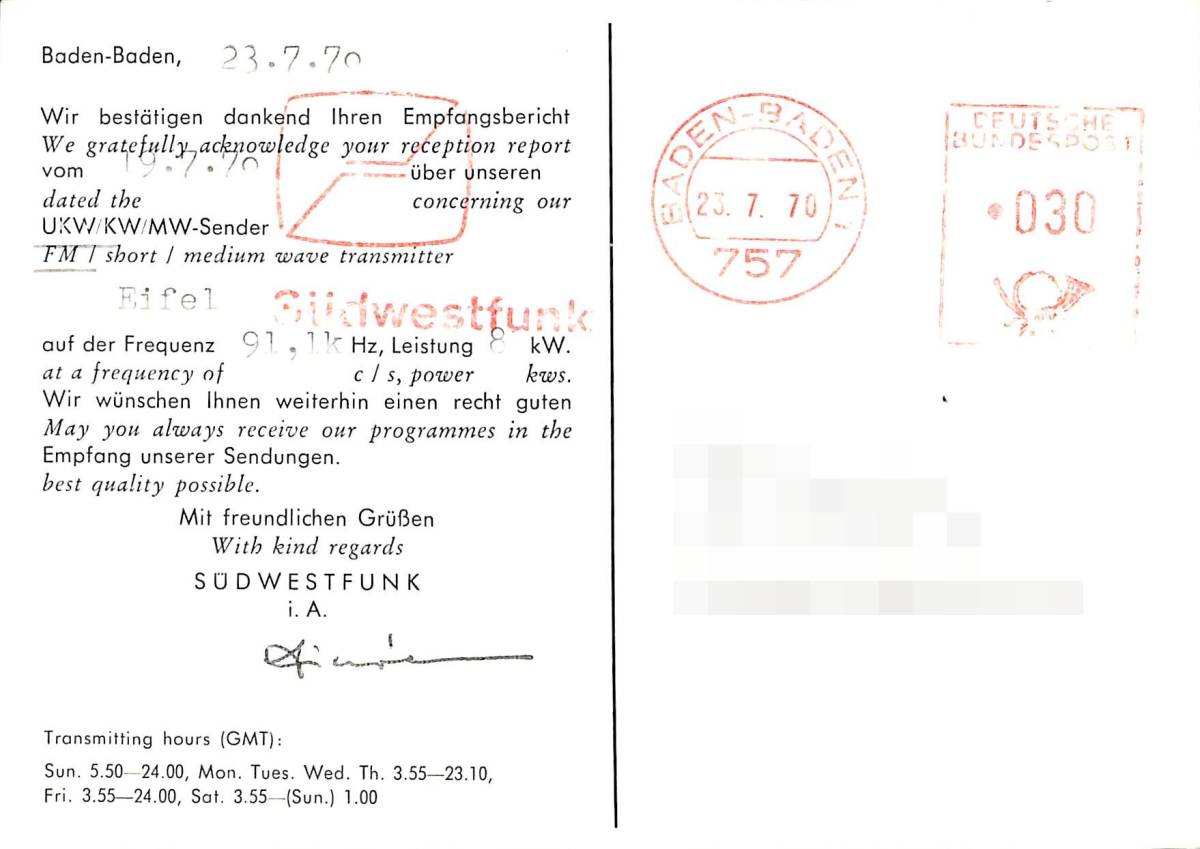 Baden-Baden, 23.7.70
Wir bestätigen dankend Ihren Empfangsbericht
We gratefully acknowledge your reception report
vom 19.7.70 über unseren
dated the concerning our
UKW/KW/MW-Sender
FM / short / medium wave transmitter
Eifel
Südwestfunk
auf der Frequenz 91,1k Hz, Leistung 8 kW.
at a frequency of c / s, power kws.
Wir wünschen Ihnen weiterhin einen recht guten
May you always receive our programmes in the
Empfang unserer Sendungen.
best quality possible.
Mit freundlichen Grüßen
With kind regards
SÜDWESTFUNK
i. A.
Transmitting hours (GMT):
Sun. 5.50—24.00, Mon. Tues. Wed. Th. 3.55—23.10,
Fri. 3.55—24.00, Sat. 3.55—(Sun.) 1.00
BADEN-BADEN 1
23. 7. 70
757
DEUTSCHE
BUNDESPOST
030